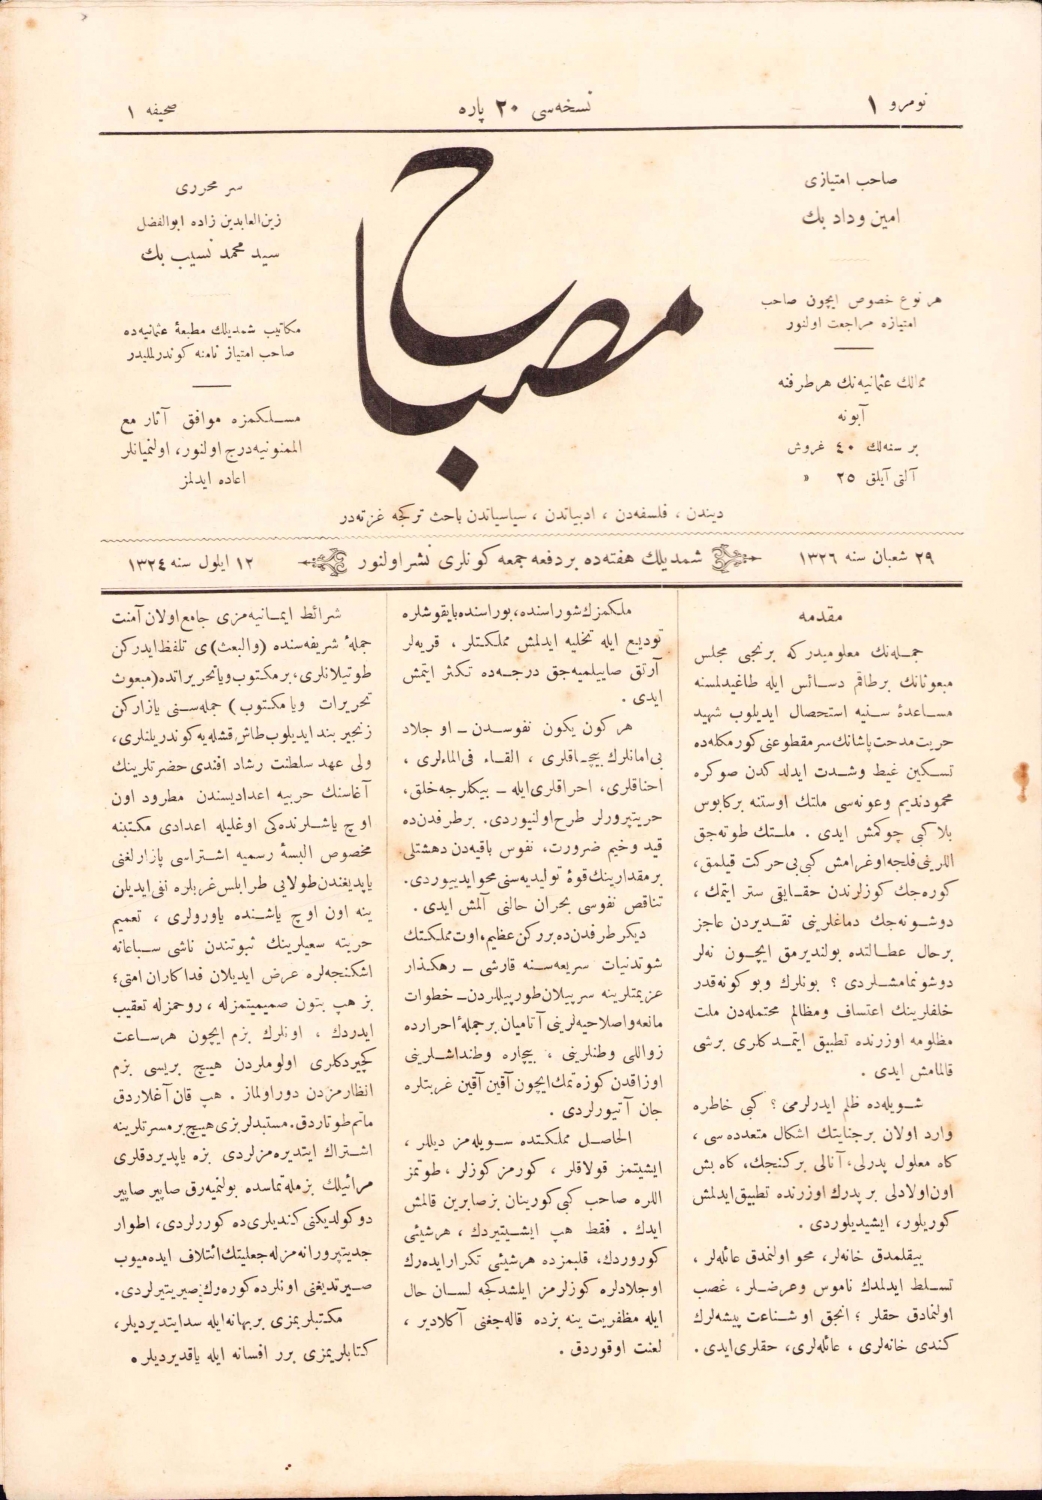 نومرو ۱
نسخه‌سی ۲۰ پاره
صحیفه ۱
صاحب امتیازی
امین وداد بك
هر نوع خصوص ایچون صاحب
امتیازه مراجعت اولنور
ممالك عثمانیه‌نك هر طرفنه
آبونه
بر سنه‌لك ٤٠ غروش
آلتی آیلق ۲٥ »
مصباح
سر محرری
زین‌العابدین زاده ابوالفضل
سید محمد نسیب بك
مكاتیب شمدیلك مطبعهٔ عثمانیه‌ده
صاحب امتیاز نامنه كوندرلملیدر
مسلكمزه موافق آثار مع
الممنونیه درج اولنور، اولنمیانلر
اعاده ایدلمز
دیندن ، فلسفه‌دن ، ادبیاتدن ، سیاسیاتدن باحث تركجه غزته‌در
۲۹ شعبان سنه ۱۳۲٦
شمدیلك هفته‌ده بر دفعه جمعه كونلری نشر اولنور
۱۲ ایلول سنه ۱۳۲٤
مقدمه
جمله‌نك معلومیدر كه برنجی مجلس
مبعوثانك برطاقم دسائس ایله طاغیدلمسنه
مساعدهٔ سنیه استحصال ایدیلوب شهید
حریت مدحت پاشانك سر مقطوعنی كورمكله‌ده
تسكین غیظ وشدت ایدلدكدن صوكره
محمود ندیم وعونه‌سی ملتك اوستنه بركابوس
بلا كبی چوكمش ایدی . ملتك طوته‌جق
اللرینی فلجه اوغرامش كبی بی حركت قیلمق،
كوره‌جك كوزلرندن حقایقی ستر ایتمك ،
دوشونه‌جك دماغلرینی تقدیردن عاجز
برحال عطالتده بولندیرمق ایچون نه‌لر
دوشونمامشلردی ؟ بونلرك وبو كونه‌قدر
خلفلرینك اعتساف ومظالم محتمله‌دن ملت
مظلومه اوزرنده تطبیق ایتمدكلری برشی
قالمامش ایدی .
شویله‌ده ظلم ایدرلرمی ؟ كبی خاطره
وارد اولان برجنایتك اشكال متعدده سی ،
كاه معلول پدرلی، آنالی بركنجك، كاه بش
اون اولادلی بر پدرك اوزرنده تطبیق ایدلمش
كوریلور، ایشیدیلوردی .
ییقلمدق خانه‌لر، محو اولنمدق عائله‌لر ،
تسلط ایدلمدك ناموس وعرضلر، غصب
اولنمادق حقلر ؛ انجق او شناعت پیشه‌لرك
كندی خانه‌لری ، عائله‌لری، حقلری ایدی .
ملكمزك شوراسنده، بوراسنده بایقوشلره
تودیع ایله تخلیه ایدلمش مملكتلر ، قریه‌لر
آرتق صاییلمیه‌جق درجه‌ده تكثر ایتمش
ایدی .
هر كون یكون نفوسدن ـ او جلاد
بی‌امانلرك بیچاقلری ، القاء فی‌الماءلری ،
احناقلری، احراقلری ایله ـ بیكلرجه خلق،
حریتپرورلر طرح اولنیوردی. بر طرفدن‌ده
قید وخیم ضرورت، نفوس باقیه‌دن دهشتلی
بر مقدارینك قوهٔ تولیدیه‌سنی محو ایدییوردی.
تناقص نفوسی بحران حالنی آلمش ایدی.
دیكر طرفدن‌ده بر ركن عظیم، اوت مملكتك
شو تدنیات سریعه‌سنه قارشی ـ رهكذار
عزیمتلرینه سرپیلان طورپیللردن ـ خطوات
مانعه واصلاحیه‌لرینی آتامیان برجمله احرارده
زواللی وطنلرینی ، بیچاره وطنداشلرینی
اوزاقدن كوزه‌تمك ایچون آقین آقین غربتلره
جان آتیورلردی .
الحاصل مملكتده سویله‌مز دیللر ،
ایشیتمز قولاقلر ، كورمز كوزلر ، طوتمز
اللره صاحب كبی كورینان بز صابرین قالمش
ایدك . فقط هپ ایشیتیردك ، هرشیئی
كوروردك، قلبمزده هرشیئی تكرار ایده‌رك
اوجلادلره كوزلرمز ایلشدكجه لسان حال
ایله مظفریت ینه بزده قاله‌جغنی آكلادیر ،
لعنت اوقوردق .
شرائط ایمانیه‌مزی جامع اولان آمنت
جملهٔ شریفه‌سنده (والبعث)ی تلفظ ایدركن
طوتیلانلری، بر مكتوب ویا تحریراتده (مبعوث
تحریرات ویا مكتوب) جمله‌سنی یازاركن
زنجیر بند ایدیلوب طاش قشله‌یه كوندریلنلری،
ولی عهد سلطنت رشاد افندی حضرتلرینك
آغاسنك حربیه اعدادیسندن مطرود اون
اوچ یاشلرنده‌كی اوغلیله اعدادی مكتبنه
مخصوص البسهٔ رسمیه اشتراسی پازارلغنی
یاپدیغندن طولایی طرابلس غربلره نفی ایدیلن
ینه اون اوچ یاشنده یاورولری ، تعمیم
حریته سعیلرینك ثبوتندن ناشی سباعانه
اشكنجه‌لره عرض ایدیلان فداكاران امتی؛
بز هپ بتون صمیمیتمزله ، روحمزله تعقیب
ایدردك ، اونلرك بزم ایچون هرساعت
كچیردكلری اولوملردن هیچ بریسی بزم
انظارمزدن دور اولماز . هپ قان آغلاردق
ماتم طوتاردق. مستبدلر بزی هیچ بر مسرتلرینه
اشتراك ایتدیره‌مزلردی بزه یاپدیردقلری
مرائیلك بزمله تماسده بولنمیه‌رق صاپیر صاپیر
دوكولدیكنی كندیلری‌ده كوررلردی، اطوار
جدیتپرورانه‌مزله جعلیتك ائتلاف ایده‌میوب
صیرتدیغنی اونلرده كوره‌رك صیریتیرلردی.
مكتبلریمزی بر بهانه ایله سد ایتدیردیلر،
كتابلریمزی برر افسانه ایله یاقدیردیلر.